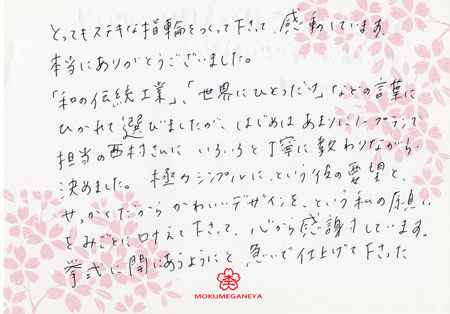 とってもステキな指輪をつくって下さって、感動しています。
本当にありがとうございました。
「和の伝統工業」、「世界にひとつだけ」などの言葉に
ひかれて選びましたが、はじめはあまりにノープランで
担当の西村さんに いろいろと丁寧に教わりながら、
決めました。 極力シンプルに、という彼の要望と、
せっかくだから かわいいデザインを、という私の願い
をみごとに叶えて下さって、心から感謝しています。
挙式に間にあうようにと 急いで仕上げて下さった
MOKUMEGANEYA